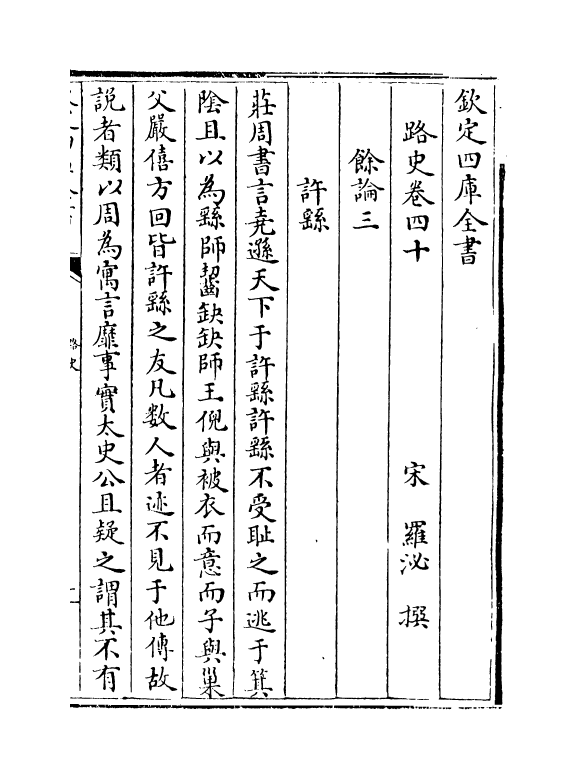 欽定四庫全書
路史卷四十
宋 羅泌 撰
餘論三
許繇
莊周書言堯遜天下于許繇許繇不受耻之而逃于箕
陰且以為繇師齧缺缺師王倪與被衣而意而子與巢
父嚴僖方回皆許繇之友凡数人者迹不見于他傳故
説者類以周為寓言靡事實太史公且疑之謂其不有
路史